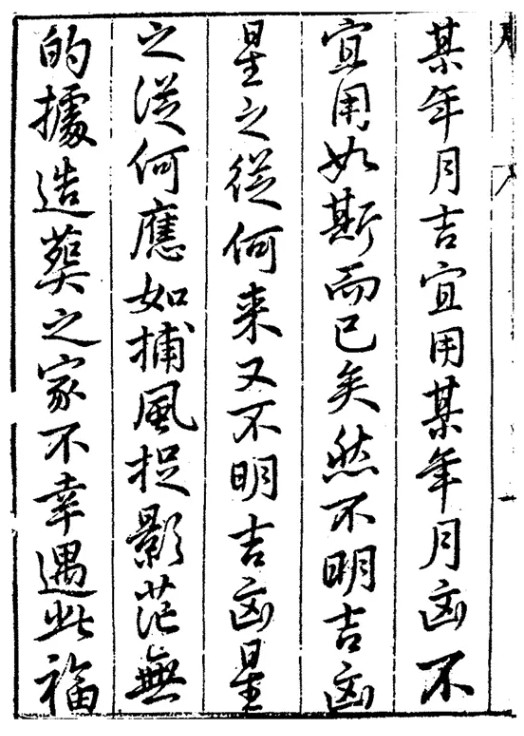 某年月吉宜用某年月凶不
宜用如斯而已矣然不明吉凶
星之從何来又不明吉凶星
之從何應如捕風捉影茫無
的據造葬之家不幸遇此福